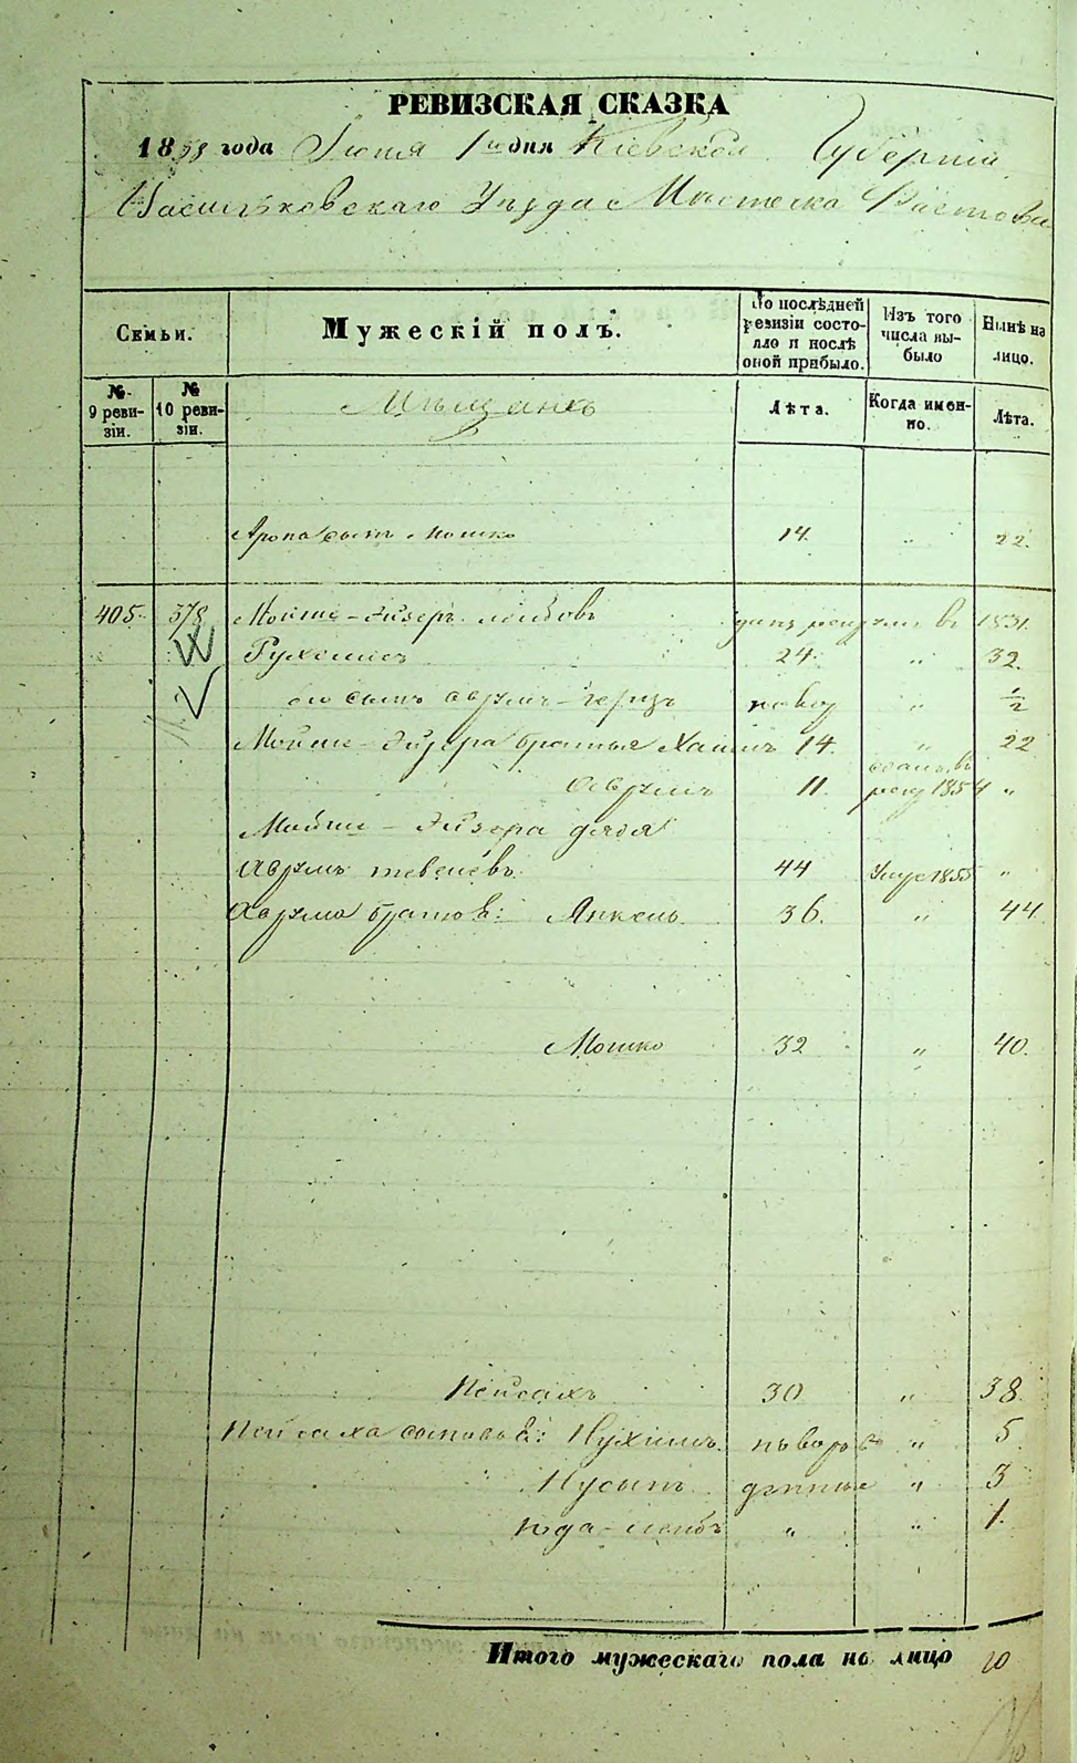 РЕВИЗСКАЯ СКАЗКА
1858 года Іюня 1го дня Кіевской Губерніи
Васильковскаго Уѣзда Мѣстечка Фастова
Семьи.
Мужескій полъ.
По послѣдней ревизіи состояло и послѣ оной прибыло.
Изъ того числа выбыло
Нынѣ на лицо.
№ 9 ревизіи.
№ 10 ревизіи.
Мѣщанъ
Лѣта.
Когда именно.
Лѣта.
сынъ Мошко 14. „ 22.
405. 378 Мойше-Эйзеръ Лейбовъ въ 1831.
Рухимъ 24. „ 32.
его сынъ Аврумъ-Герцъ новор „ 1/2
Мойше-Эйзера братья Хаимъ 14. „ 22
Аврумъ 11. сданъ въ рекр 1854 „
Мойше-Эйзера дядя
Аврумъ 44 Умре 1855 „
Аврума братовья: Янкель 36. „ 44.
Мошко 32 „ 40.
Пейсахъ 30 „ 38.
Пейсаха сыновья: Нухимъ новоро „ 5.
Нусынъ „ 3
Юда-Лейбъ „ „ 1.
Итого мужескаго пола на лицо 10